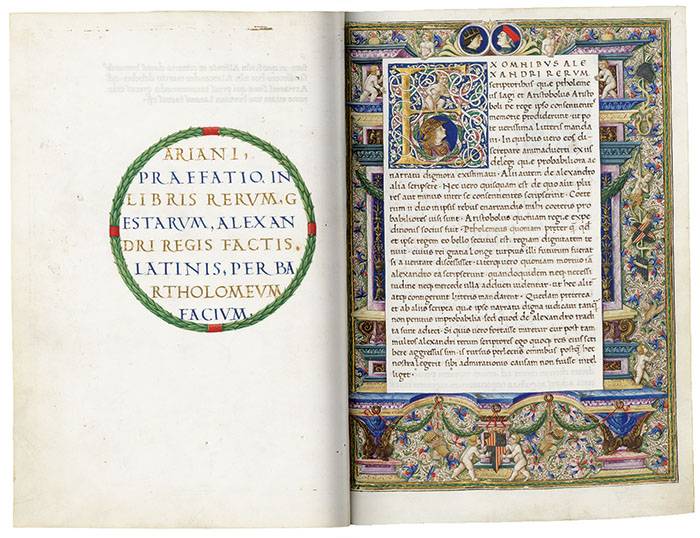 ARIANI,
PRAEFATIO, IN
LIBRIS RERVM, G
ESTARVM, ALEXAN
DRI REGIS FACTIS,
LATINIS, PER BA
RTHOLOMEVM
FACIVM,
EX OMNIBVS ALE
XANDRI RERVM
scriptoribus que ptholeme
us lagi et Aristobolus Aristo
boli de rege ipso consentientes
memorie prodiderunt: ut po
te verissima litteris manda
ui. In quibus uero eos dis
crepare animaduerti ex iis
delegi que probabiliora ac
narratu digniora existimaui. Alii autem de alexandro
alia scripsere. Nec uero quisquam est de quo aut plu
res aut minus inter se consentientes scripserint. Cete
rum ii duo mihi ipsis rebus enarrandis multo ceteris pro
babiliores uisi sunt. Aristobolus quoniam regi expe
ditionis socius fuit. Ptholemeus quoniam preter quod
et ipse regem eo bello secutus est: regiam dignitatem te
nuit: cuius rei gratia longe turpius illi futurum fuerat
a ueritate discessisset. Uterque uero quoniam mortuo iam
alexandro ea scripserunt: quandoquidem neque necessi
tudine neque mercede ulla adduci uidentur: ut hec alit
atque contingerunt litteris mandarent. Quedam preterea
et ab aliis scripta que ipse narratu digna iudicaui tanquam
non penitus improbabilia sed quod de alexandro tradi
ta sunt adieci. Si quis uero fortasse miretur cur post tam
multos alexandri rerum scriptores ego quoque res eius scri
bere aggressus sim: is rursus perlectis omnibus postquam hec
nostra legerit sibi admirationis causam non fuisse intel
liget.